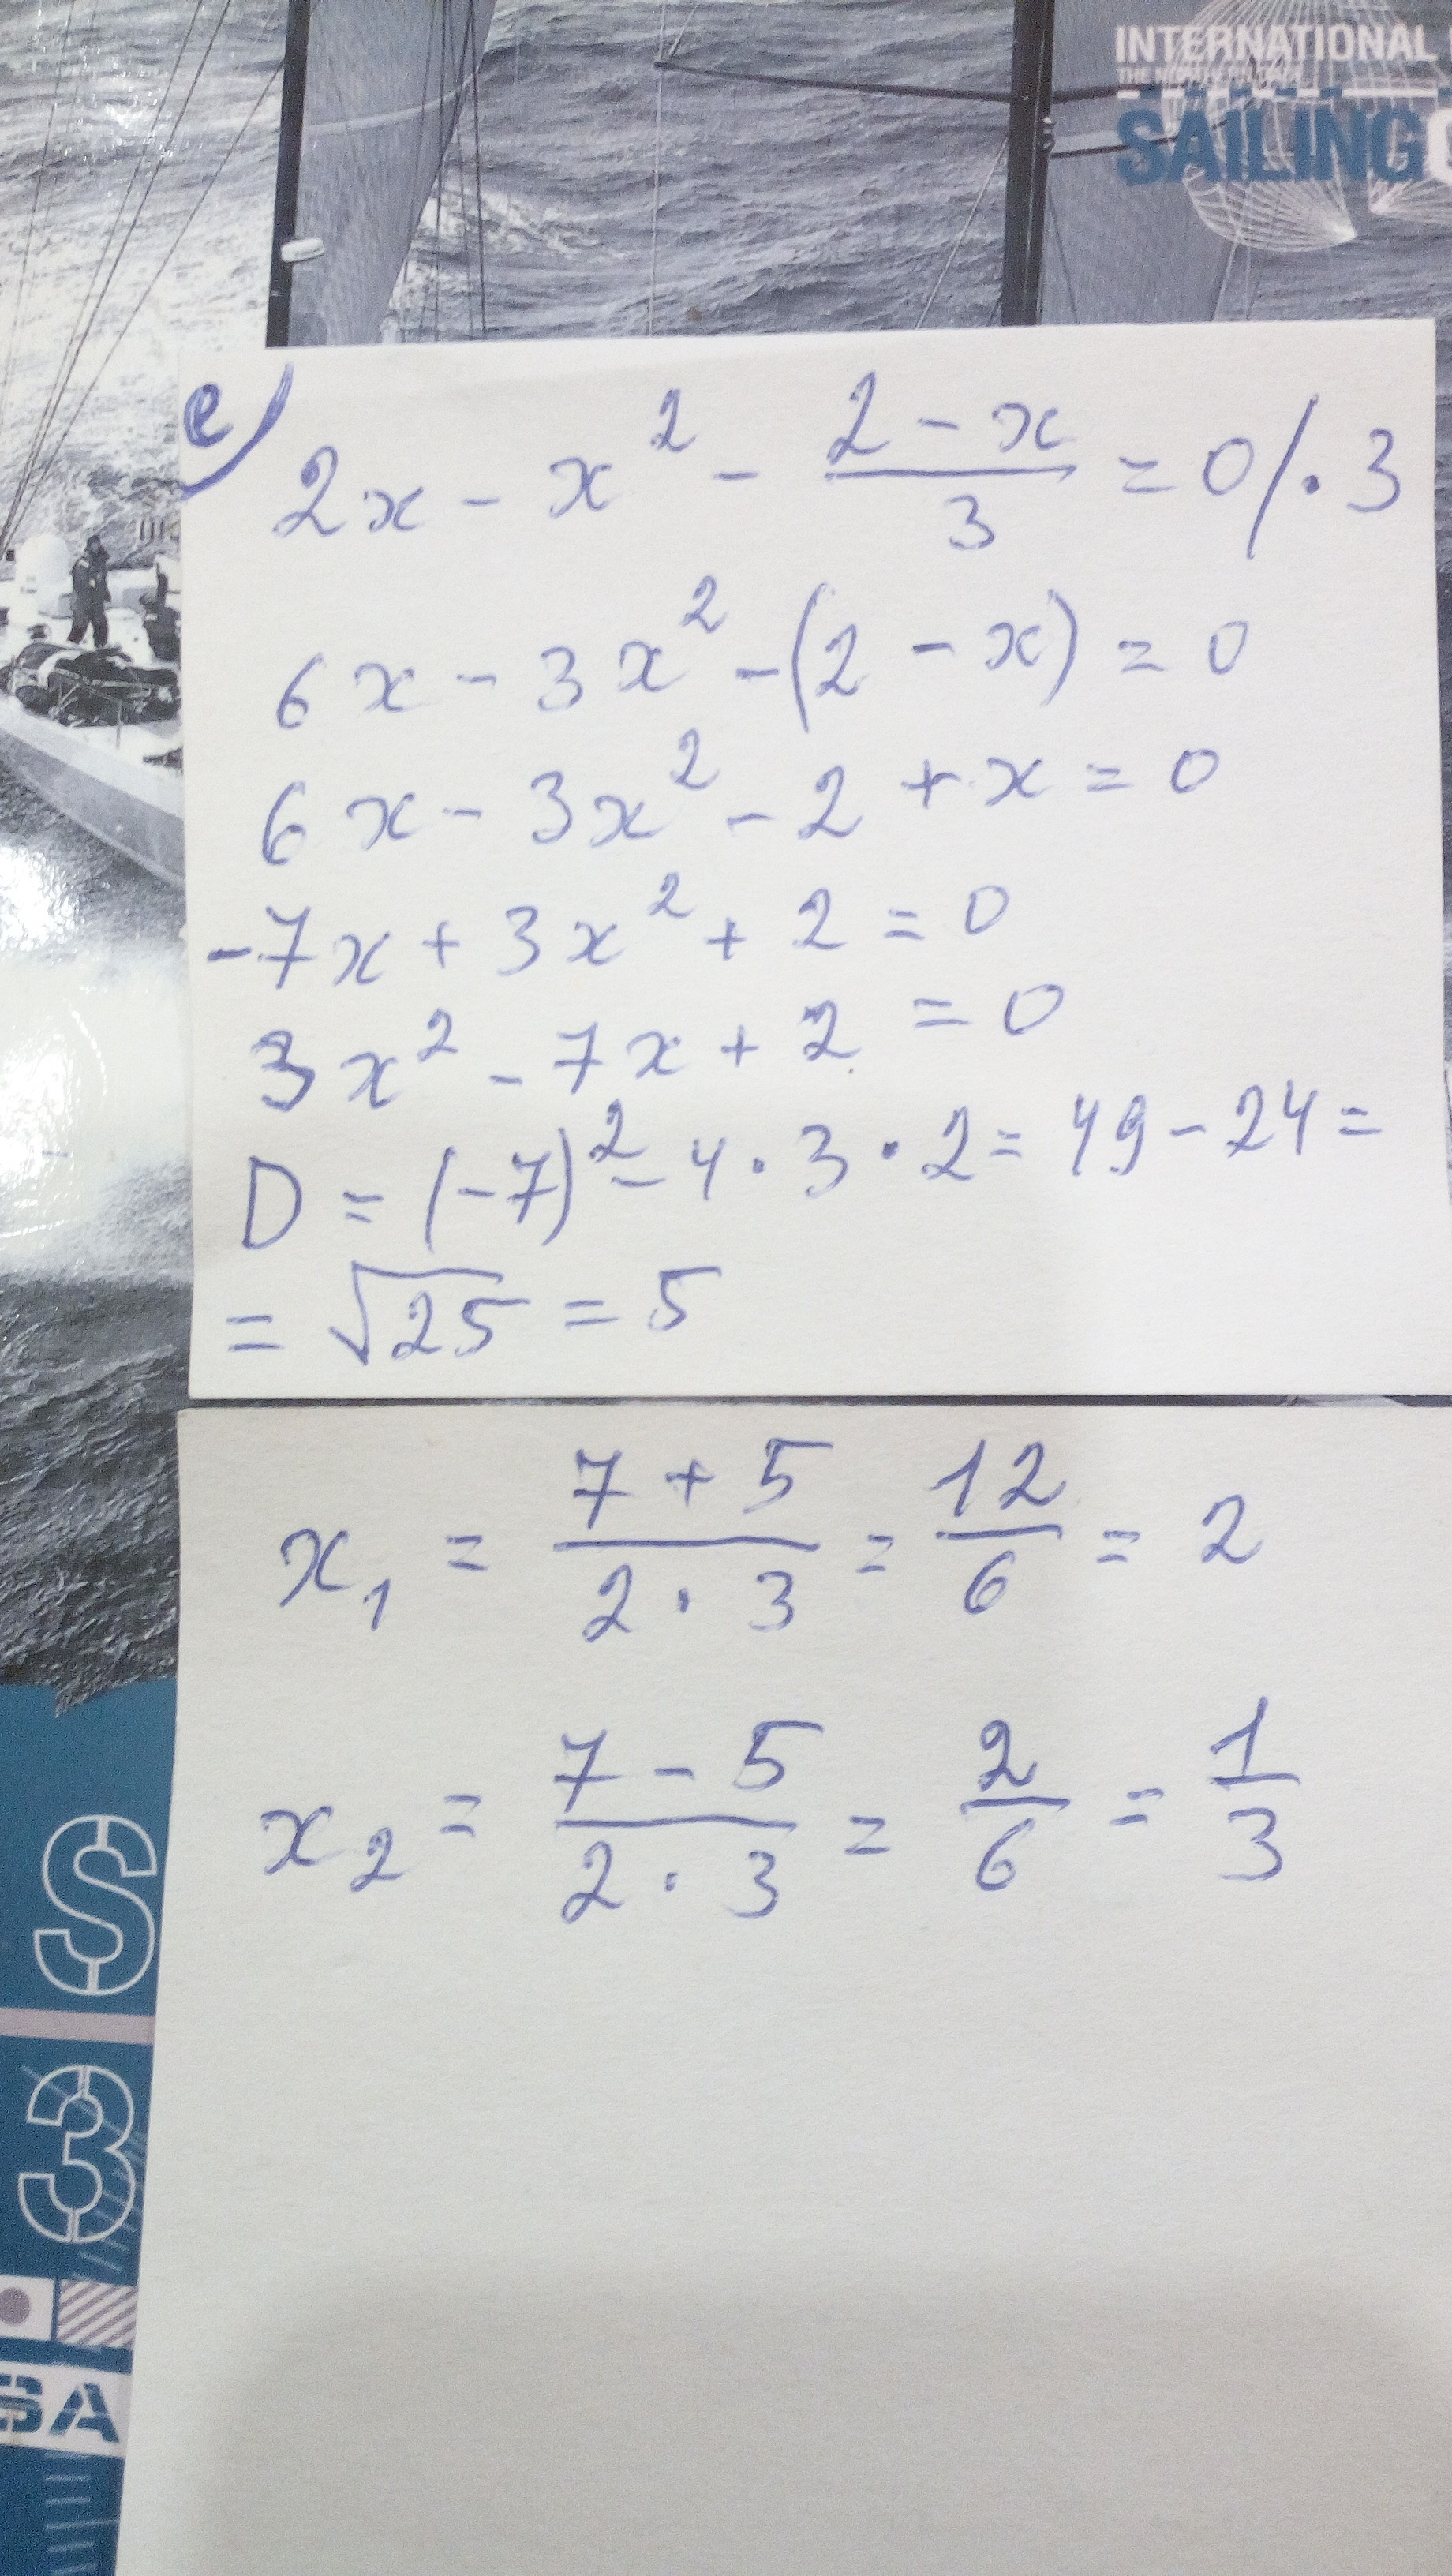 INTERNATIONAL
SAILING
e)
2x - x² - (2 - x)/3 = 0 / · 3
6x - 3x² - (2 - x) = 0
6x - 3x² - 2 + x = 0
-7x + 3x² + 2 = 0
3x² - 7x + 2 = 0
D = (-7)² - 4 · 3 · 2 = 49 - 24 =
= √25 = 5
x₁ = (7 + 5)/(2 · 3) = 12/6 = 2
x₂ = (7 - 5)/(2 · 3) = 2/6 = 1/3
S
3
SA